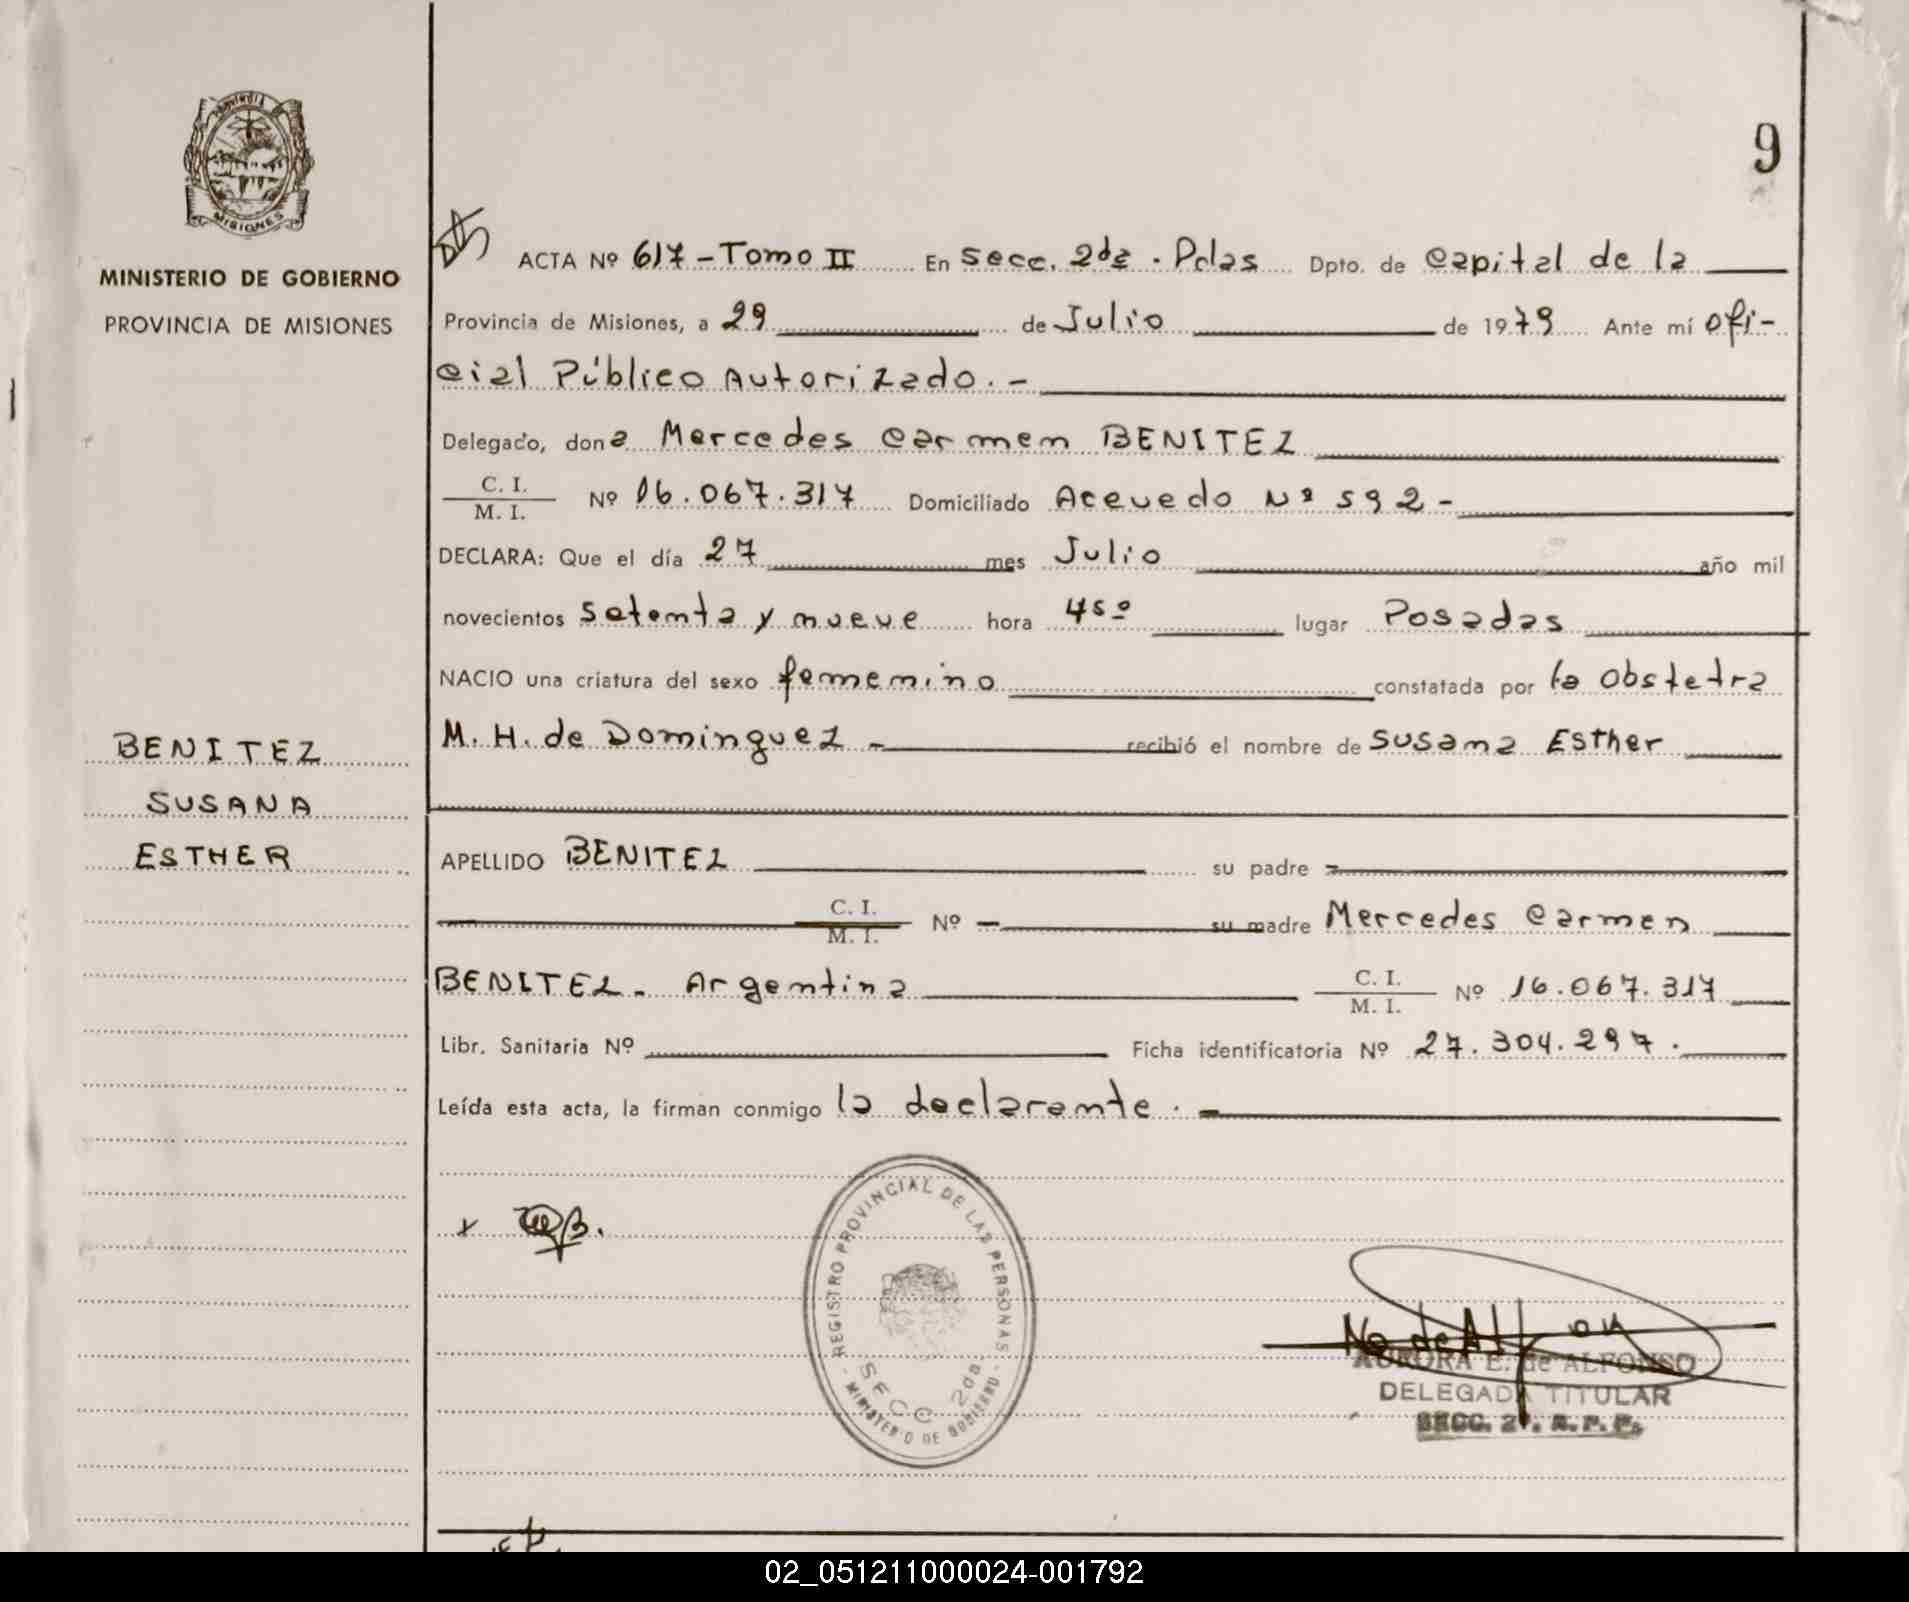 9
PROVINCIA
MISIONES
MINISTERIO DE GOBIERNO
PROVINCIA DE MISIONES
ACTA Nº 617 - Tomo II En Secc. 2da. Pdas Dpto. de Capital de la
Provincia de Misiones, a 29 de Julio de 1979 Ante mí ofi-
cial Público Autorizado. -
Delegado, dona Mercedes Carmen BENITEZ
C. I.
M. I. Nº 16.067.317 Domiciliado Acevedo Nº 592 -
DECLARA: Que el día 27 mes Julio año mil
novecientos setenta y nueve hora 450 lugar Posadas
NACIO una criatura del sexo femenino constatada por la obstetra
M. H. de Dominguez - recibió el nombre de Susana Esther
BENITEZ
SUSANA
ESTHER
APELLIDO BENITEZ su padre -
C. I.
M. I. Nº - su madre Mercedes Carmen
BENITEZ - Argentina C. I.
M. I. Nº 16.067.317
Libr. Sanitaria Nº Ficha identificatoria Nº 27.304.297.
Leída esta acta, la firman conmigo la declarante. -
x
REGISTRO PROVINCIAL DE LAS PERSONAS
SECC 2da
- MINISTERIO DE GOBIERNO -
AURORA E. de ALFONSO
DELEGADA TITULAR
SECC. 2ª. R. P. P.
02_051211000024-001792